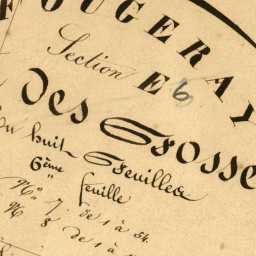 FOUGERAY
Section E 6
des Fosse
en huit Feuilles
6ème feuille
Nº 7. de 1 à 54.
N 8 de 1 à